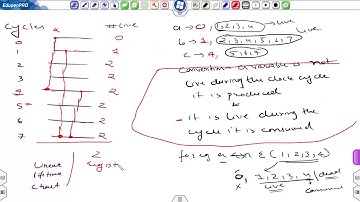 EduperPRO
Cycles #Live
0 0
1 1
2 2
3 2
4 2
5 2
6 2
7 2
a
Linear lifetime chart
2
a → 0, 1,2,3,4 → Live
b → 1, 2,3,4,5,6,7 Live
c → 4, 5,6,7
Convention a variable is not
live during the clock cycle
it is produced
→ it is live during the
cycle it is consumed
for eg a ∈ (1,2,3,4)
0, 1,2,3,4 / dead
x live